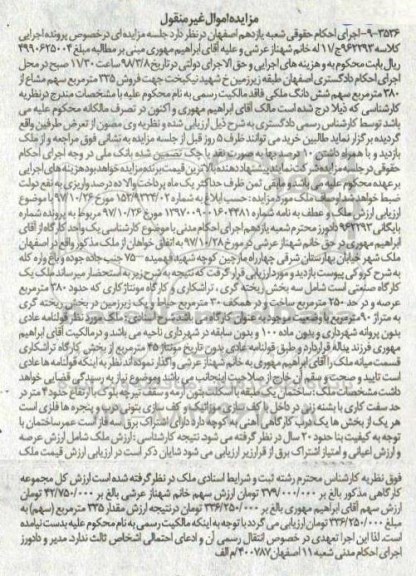 مزایده اموال غیر منقول
۹-۳۵۳۶- اجرای احکام حقوقی شعبه یازدهم اصفهان در نظر دارد جلسه مزایده ای در خصوص پرونده اجرایی
کلاسه ۹۶۲۲۹۳ ج/۱۱ له خانم شهناز عرشی و علیه آقای ابراهیم مهوری مبنی بر مطالبه مبلغ ۴۹۹۰۶۲۵۰۰۴
ریال بابت محکوم به و هزینه های اجرایی و حق الاجرای دولتی در تاریخ ۹۸/۳/۸ ساعت ۱۱/۳۰ صبح در محل
اجرای احکام دادگستری اصفهان طبقه زیرزمین خ شهید نیکبخت جهت فروش ۳۳۵ مترمربع سهم مشاع از
۳۸۰ مترمربع سهم شش دانگ ملکی فاقد مالکیت رسمی به نام محکوم علیه با مشخصات مندرج در نظریه
کارشناسی که ذیلا درج شده است مالک آقای ابراهیم مهوری و اکنون در تصرف مالکانه محکوم علیه می
باشد توسط کارشناس رسمی دادگستری به شرح ذیل ارزیابی شده و نظریه وی مصون از تعرض طرفین واقع
گردیده برگزار نماید طالبین خرید می توانند ظرف ۵ روز قبل از جلسه مزایده به نشانی فوق مراجعه و از ملک
بازدید و با همراه داشتن ۱۰ درصد بها به صورت نقد یا چک تضمین شده بانک ملی در وجه اجرای احکام
حقوقی در جلسه مزایده شرکت نمایند پیشنهاد دهنده بالاترین قیمت برنده مزایده خواهد بود هزینه های اجرایی
بر عهده محکوم علیه می باشد و مابقی ثمن ظرف حداکثر یک ماه پرداخت والا ده درصد واریزی به نفع دولت
ضبط خواهد شد اوصاف ملک مورد مزایده: حسب ابلاغ به شماره ۱۵۲/۹۳۲۴/۰۲ مورخ ۹۷/۱۰/۲۶ با موضوع
ارزیابی ارزش ملک و عطف به نامه شماره ۱۳۹۷۰۰۹۰۰۱۶۰۴۳۸۱ مورخ ۹۷/۱۰/۲۶ مربوط به پرونده شماره
بایگانی ۹۶۲۲۹۳ دادورز محترم شعبه یازدهم اجرای احکام مدنی با موضوع کارشناسی یک واحد کارگاه از آقای
ابراهیم مهوری در حق خانم شهناز عرشی در مورخ ۹۷/۱۰/۲۸ به اتفاق خواهان از ملک مذکور واقع در اصفهان
ملک شهر خیابان بهارستان شرقی چهارراه مارچین کوچه شهید فهمیده -۷۵ جنب جاده جوده و باغ واره کله
به شرح کروکی پیوست بازدید و مورد ارزیابی قرار گرفت که نتیجه به شرح زیر به استحضار میرساند ملک یک
کارگاه صنعتی است شامل سه بخش ریخته گری، تراشکاری و کارگاه مونتاژ کاری که حدود ۳۸۰ مترمربع
عرصه و در حد ۲۵۰ مترمربع ساخت و در همکف ۳۰ مترمربع حیاط و یک زیرزمین در بخش ریخته گری
به متراژ ۹۰ مترمربع با وضعیت موجود به عنوان کارگاه می باشد شرح اسنادی: ملک مورد نظر قولنامه عادی
بدون پروانه شهرداری و بدون ماده ۱۰۰ و بدون سابقه در شهرداری ناحیه می باشد و در مالکیت آقای ابراهیم
مهوری فرزند یداله قرار دارد و طبق قولنامه عادی بدون تاریخ مونتاژ ۴۵ مترمربع از بخش کارگاه تراشکاری
قسمت میانه ملک را آقای ابراهیم مهوری به خانم شهناز عرشی واگذار نموده اند نظر به اینکه قولنامه ها عادی
است تایید و صحت و سقم آن خارج از صلاحیت اینجانب می باشد و موضوع نیاز به رسیدگی قضایی خواهد
داشت مشخصات ملک: ساختمان یک طبقه با اسکلت بتون آرمه و سقف تیرچه بلوک با ارتفاع حدود ۴ متر در
حد سفت کاری با بشنه زنی در داخل با کف سازی موزائیک و قسمتی سازی بتونی درب و پنجره ها فلزی است
هر یک از بخش ها یک درب کارگاهی آهنی به کوچه دارد دارای اشتراک برق سه فاز است عمر ساختمان با
توجه به کیفیت بنا حدود ۲۰ سال در نظر گرفته می شود نتیجه کارشناسی: ارزش ملک شامل ارزش عرصه
و ارزش اعیانی و امتیاز اشتراک برق از قرار زیر ارزیابی می شود شایان ذکر است در ارزیابی ارزش قیمت ملک
فوق نظریه کارشناس محترم رشته ثبت و شرایط اسنادی ملک در نظر گرفته شده است ارزش کل مجموعه
کارگاهی مذکور بالغ بر ۳۷۹/۰۰۰/۰۰۰ تومان ارزش سهم خانم شهناز عرشی بالغ بر ۴۲/۷۵۰/۰۰۰ تومان
ارزش سهم آقای ابراهیم مهوری بالغ بر ۳۳۶/۲۵۰/۰۰۰ تومان در نتیجه ارزش مقدار ۳۳۵ مترمربع (سهم) به
مبلغ ۳۳۶/۲۵۰/۰۰۰ تومان ارزیابی می گردد با توجه به اینکه مالکیت رسمی به نام محکوم علیه بدست نیامده
است. لذا این اجرا تعهدی در خصوص انتقال رسمی آن و ادعای احتمالی اشخاص ثالث ندارد مدیر و دادورز
اجرای احکام مدنی شعبه ۱۱ اصفهان ۴۰۰۷۸۷/م الف